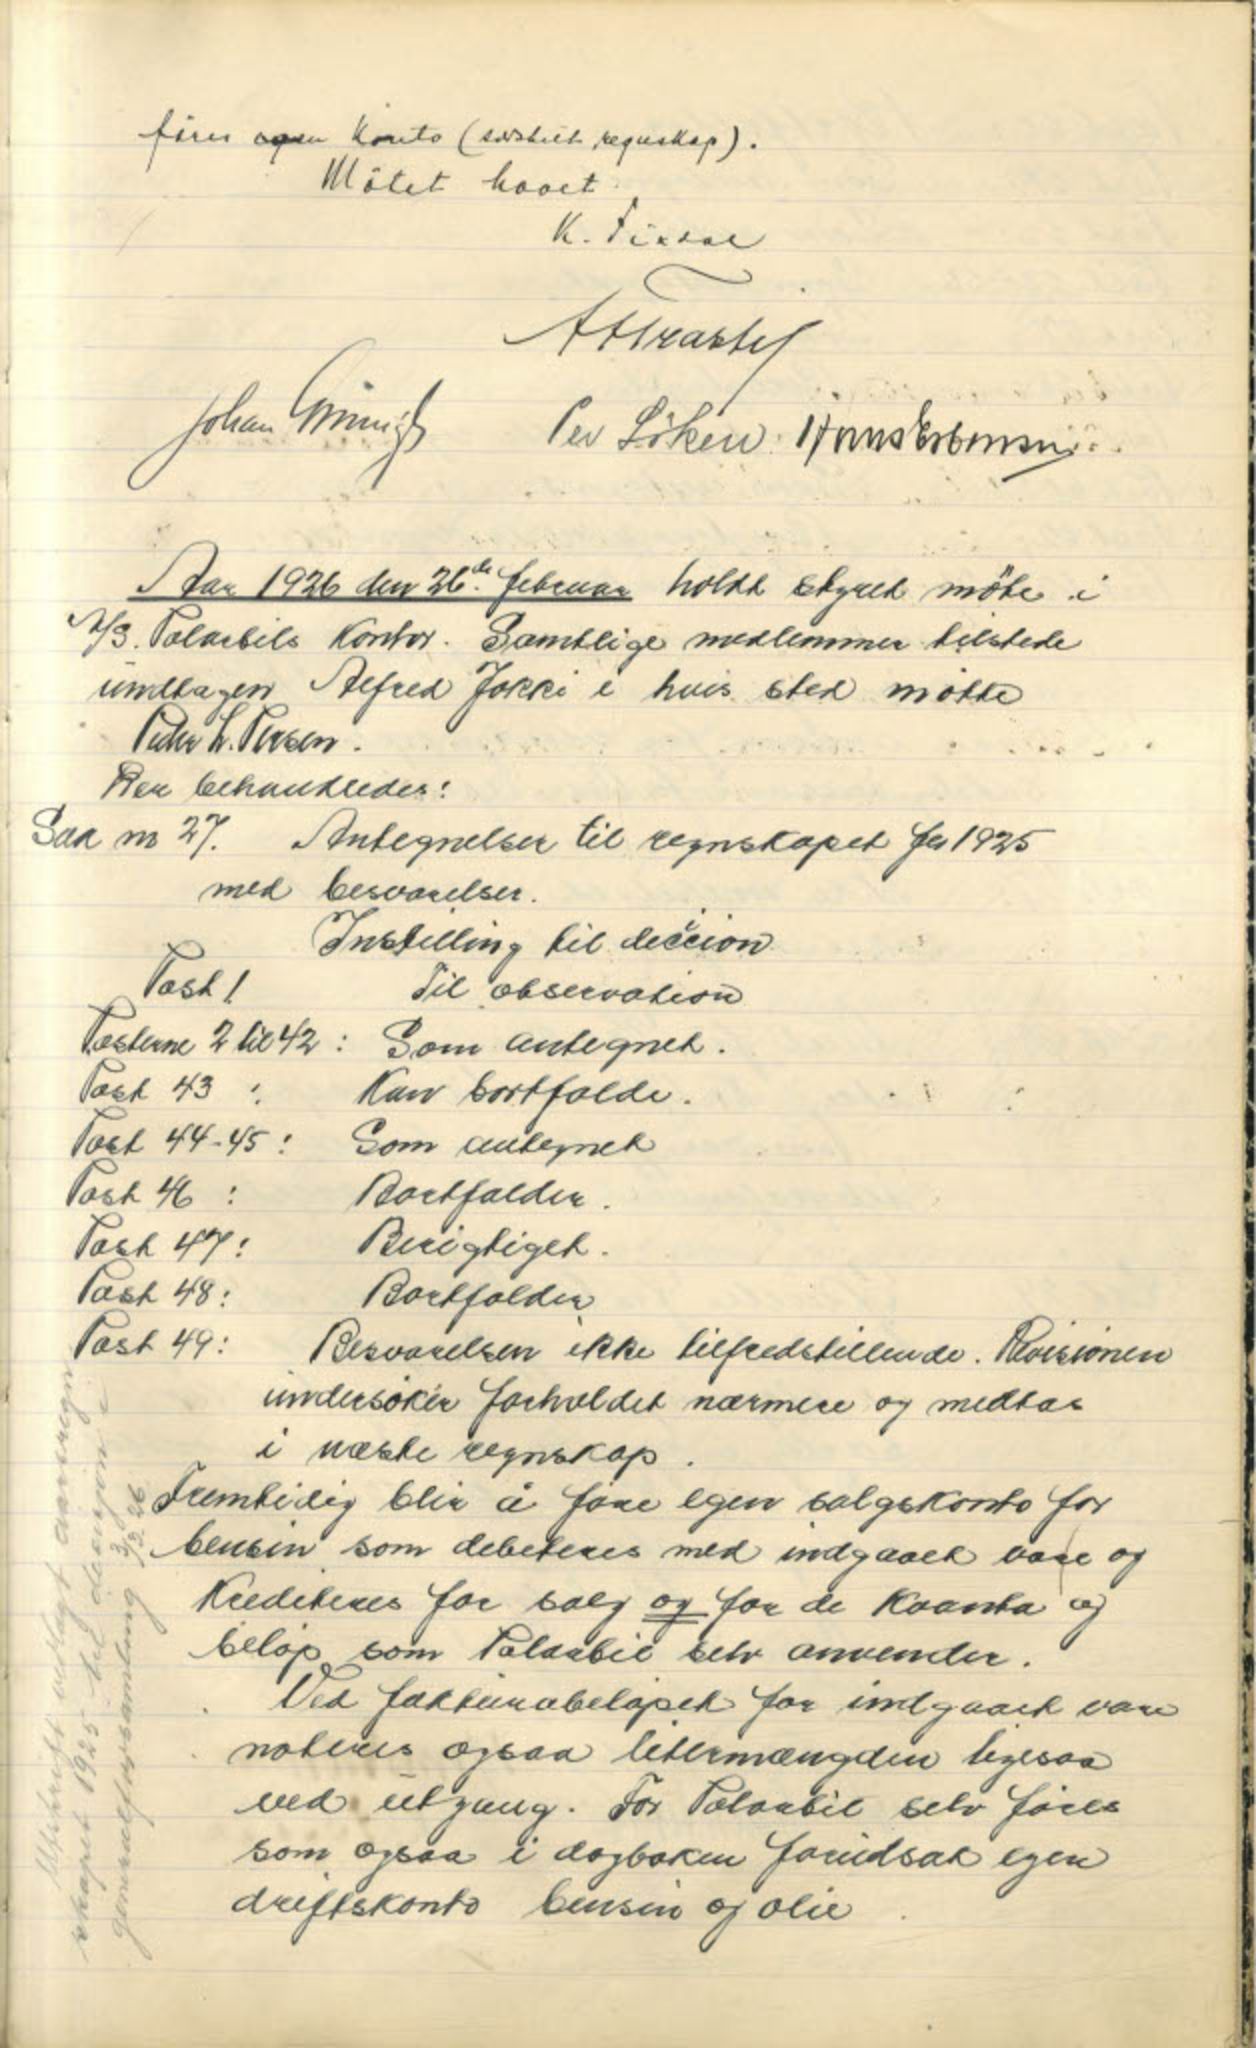 føres egen Konto (særskilt regnskap).
Møtet hævet
K.
Johan
Per Løken. Hans Esbensen
Aar 1926 den 26de februar holdt styret møte i
A/S. Polarbils Kontor. Samtlige medlemmer tilstede
undtagen Alfred Jokki i hvis sted møtte
Peder L. Persen.
Der behandledes:
Sak nr 27. Antegnelser til regnskapet for 1925
med besvarelser.
Instilling til decision
Post 1 Til observation
Posterne 2 til 42: Som antegnet.
Post 43 : Kan bortfalde.
Post 44-45: Som antegnet
Post 46 : Bortfalder.
Post 47: Berigtiget.
Post 48: Bortfalder
Post 49: Besvarelsen ikke tilfredstillende. Revisionen
undersøker forholdet nærmere og medtas
i næste regnskap.
Fremtidig blir å føre egen salgskonto for
bensin som debeteres med indgaaet vare og
Krediteres for salg og for de Kvanta og
beløp som Polarbil selv anvender.
Ved fakturabeløpet for indgaaet vare
noteres ogsaa litermængden ligesaa
ved utgang. For Polarbil selv føres
som ogsaa i dagboken forutsat egen
driftskonto bensin og olie
Utskrift vedlagt aarsregn
skapet 1925 til desisjon i
generalforsamling 3/3. 26